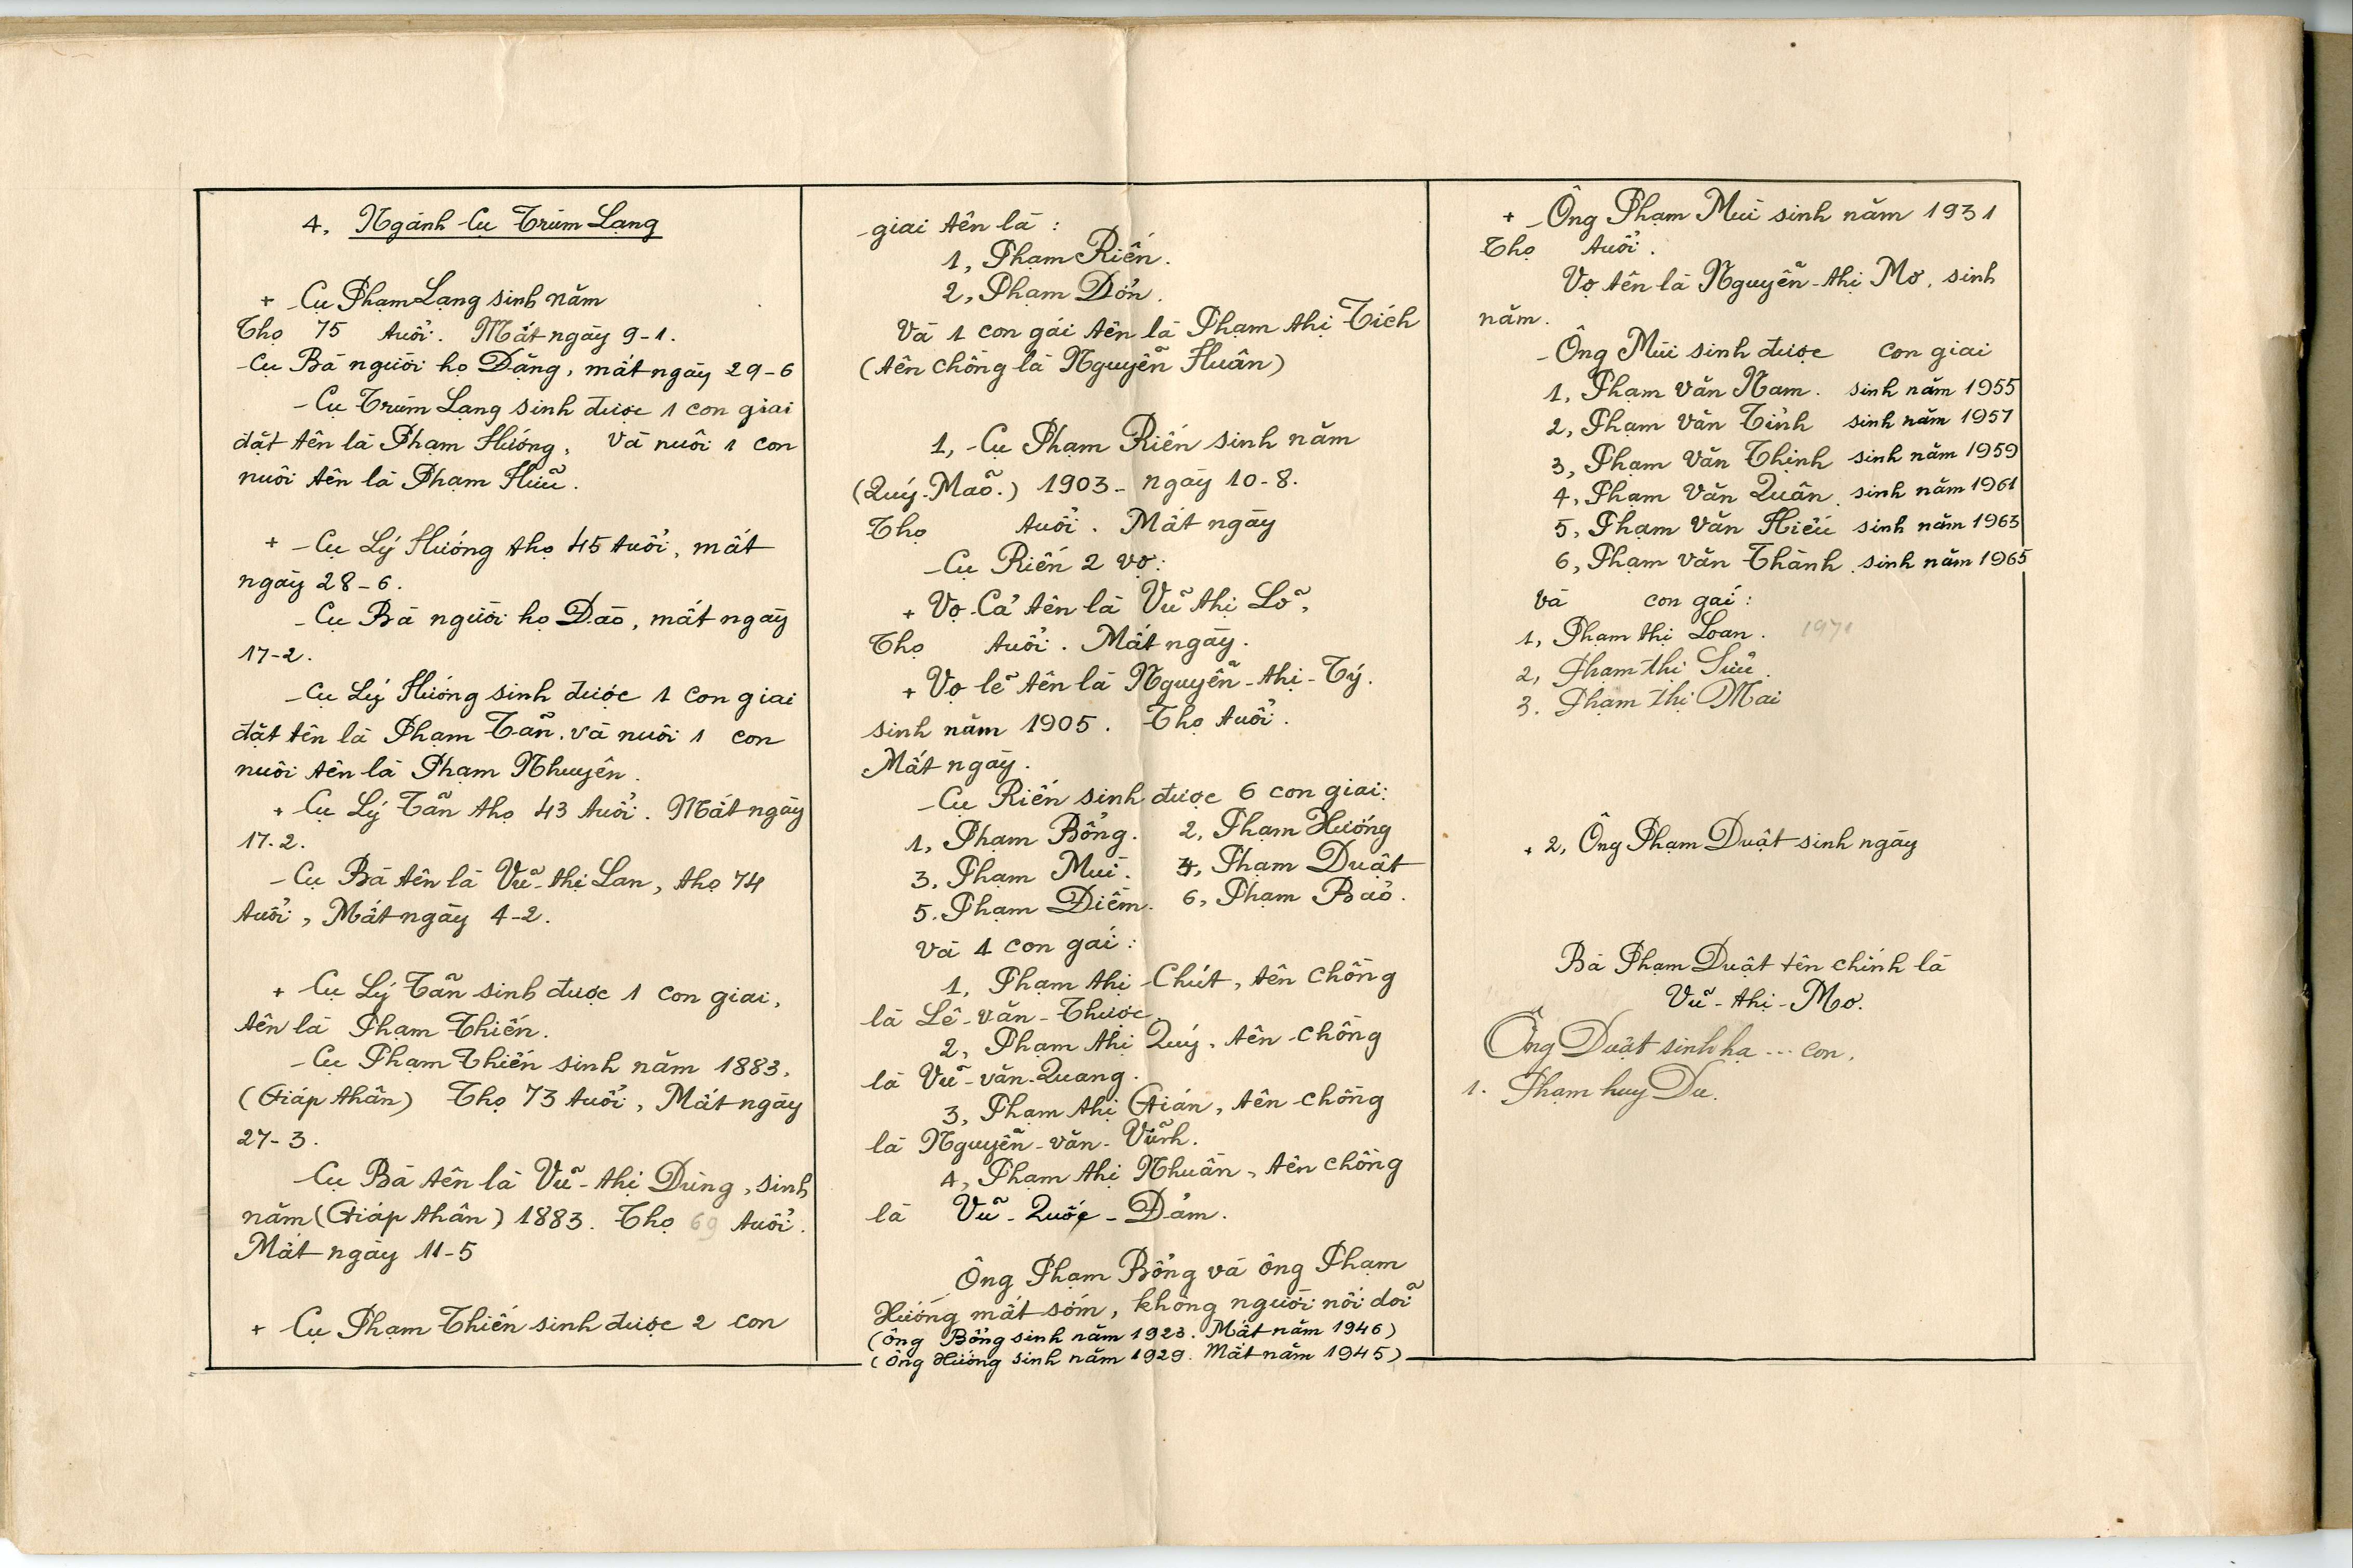 4, Ngành Cụ Trùm Lạng
+ Cụ Phạm Lạng sinh năm
Thọ 75 tuổi. Mất ngày 9-1.
- Cụ Bà người họ Đặng, mất ngày 29-6
- Cụ Trùm Lạng sinh được 1 con giai
đặt tên là Phạm Hướng, và nuôi 1 con
nuôi tên là Phạm Hữu.
+ - Cụ Lý Hướng thọ 45 tuổi, mất
ngày 28-6.
- Cụ Bà người họ Đào, mất ngày
17-2.
- Cụ Lý Hướng sinh được 1 con giai
đặt tên là Phạm Tấn, và nuôi 1 con
nuôi tên là Phạm Nhuyên.
+ Cụ Lý Tấn thọ 43 tuổi. Mất ngày
17.2.
- Cụ Bà tên là Vũ-thị Lan, thọ 74
tuổi, Mất ngày 4-2.
+ Cụ Lý Tấn sinh được 1 con giai,
tên là Phạm Thiến.
- Cụ Phạm Thiến sinh năm 1883.
(Giáp thân) Thọ 73 tuổi, Mất ngày
27-3.
Cụ Bà tên là Vũ-thị Dùng, sinh
năm (Giáp thân) 1883. Thọ 69 tuổi.
Mất ngày 11-5
+ Cụ Phạm Thiến sinh được 2 con
giai tên là :
1, Phạm Riến.
2, Phạm Dổn.
Và 1 con gái tên là Phạm thị Tích
(tên chồng là Nguyễn Huân)
1, - Cụ Phạm Riến sinh năm
(Quý-Mão.) 1903 - ngày 10-8.
Thọ tuổi. Mất ngày
- Cụ Riến 2 vợ:
+ Vợ Cả tên là Vũ thị Lỡ,
Thọ tuổi. Mất ngày.
+ Vợ lẽ tên là Nguyễn-thị-Tý.
sinh năm 1905. Thọ tuổi.
Mất ngày.
- Cụ Riến sinh được 6 con giai:
1, Phạm Bổng. 2, Phạm Hướng
3, Phạm Mùi. 4, Phạm Duật
5. Phạm Diễm. 6, Phạm Bảo.
Và 4 con gái :
1, Phạm thị Chút, tên chồng
là Lê-văn-Thược
2, Phạm thị Quý, tên chồng
là Vũ-văn-Quang.
3, Phạm thị Gián, tên chồng
là Nguyễn-văn-Vĩnh.
4, Phạm thị Nhuần, tên chồng
là Vũ-Quốc-Đảm.
Ông Phạm Bổng và ông Phạm
Hướng mất sớm, không người nối dõi
(Ông Bổng sinh năm 1923. Mất năm 1946)
(Ông Hướng sinh năm 1929. Mất năm 1945)
+ - Ông Phạm Mùi sinh năm 1931
Thọ tuổi.
Vợ tên là Nguyễn-thị Mơ, sinh
năm.
- Ông Mùi sinh được con giai
1, Phạm Văn Nam. sinh năm 1955
2, Phạm Văn Tỉnh sinh năm 1957
3, Phạm Văn Thịnh sinh năm 1959
4, Phạm Văn Quân sinh năm 1961
5, Phạm Văn Hiếu sinh năm 1963
6, Phạm Văn Thành sinh năm 1965
Và con gái :
1, Phạm thị Loan. 1971
2, Phạm thị Sửu.
3. Phạm thị Mai
+ 2, Ông Phạm Duật sinh ngày
Bà Phạm Duật tên chính là
Vũ-thị-Mơ.
Ông Duật sinh hạ ... con,
1. Phạm huy Du.